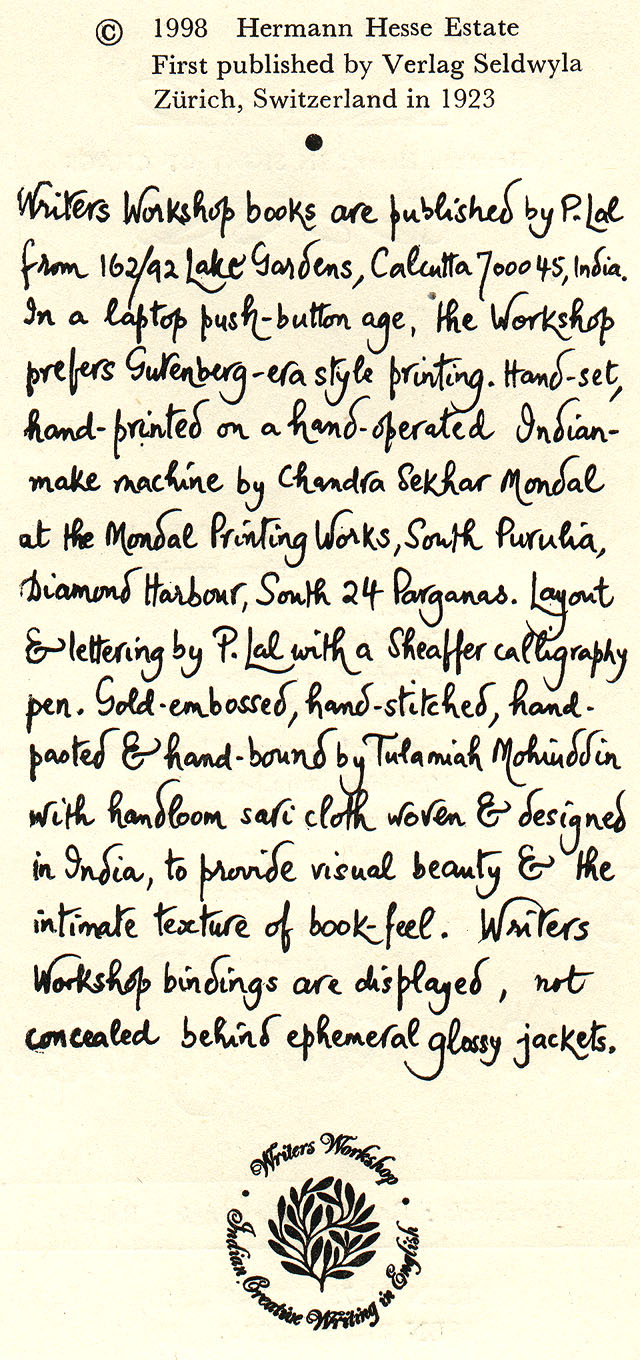 © 1998 Hermann Hesse Estate
First published by Verlag Seldwyla
Zürich, Switzerland in 1923
Writers Workshop books are published by P. Lal
from 162/92 Lake Gardens, Calcutta 700045, India.
In a laptop push-button age, the Workshop
prefers Gutenberg-era style printing. Hand-set,
hand-printed on a hand-operated Indian-
make machine by Chandra Sekhar Mondal
at the Mondal Printing Works, South Purulia,
Diamond Harbour, South 24 Parganas. Layout
& lettering by P. Lal with a Sheaffer calligraphy
pen. Gold-embossed, hand-stitched, hand-
pasted & hand-bound by Tulamiah Mohiuddin
with handloom sari cloth woven & designed
in India, to provide visual beauty & the
intimate texture of book-feel. Writers
Workshop bindings are displayed, not
concealed behind ephemeral glossy jackets.
Writers Workshop
Indian Creative Writing in English